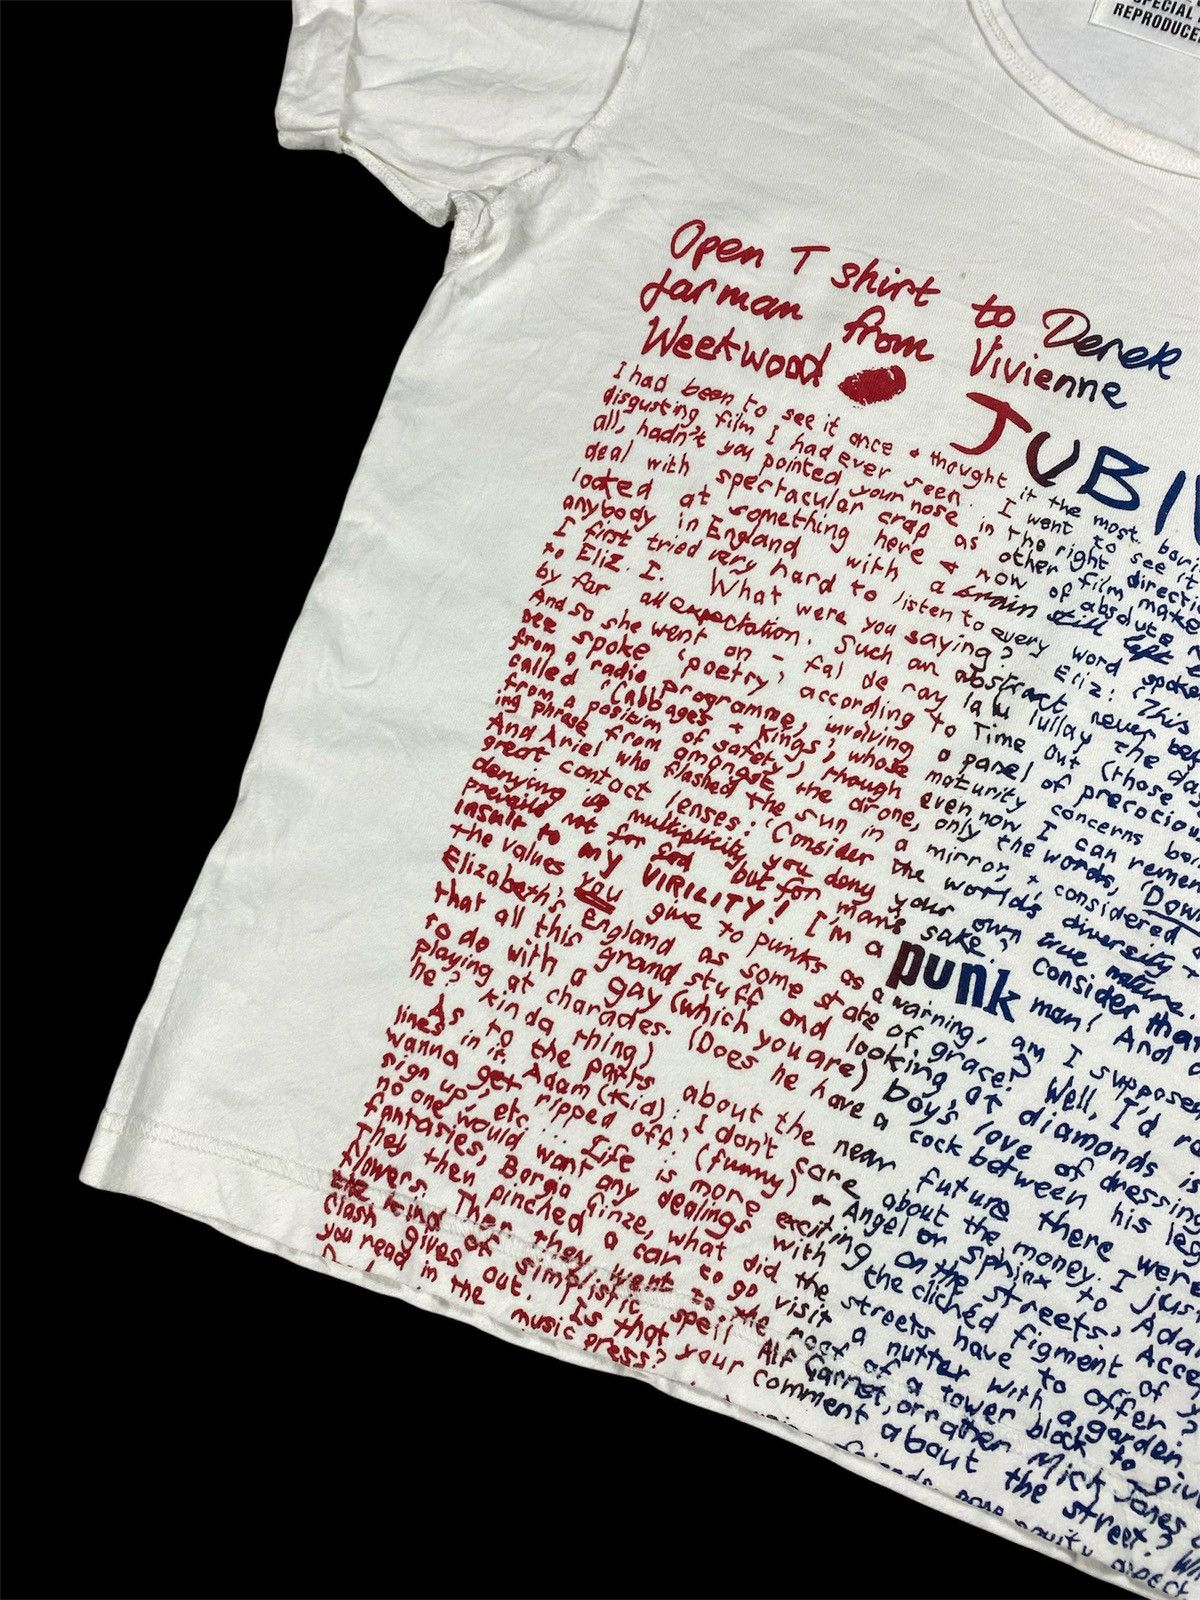 SPECIAL
REPRODUCE
Open T shirt to Derek
Jarman from Vivienne
Westwood
JUBI
I had been to see it once & thought it the most bori
disgusting film I had ever seen. I went to see it
all, hadn't you pointed your nose in the right directi
deal with spectacular crap as other film make
looked at something here & now of absolute
anybody in England with a brain still left
I first tried very hard to listen to every word spoke
to Eliz. I. What were you saying? Eliz: 'This
by far all expectation. Such an abstract never be
And so she went on - fal de ray la lu lullay the da
Dee spoke 'poetry', according to Time Out (those
from a radio programme, involving a panel of precociou
called 'Cabbages & Kings', whose maturity concerns bei
from a position of safety), though even now I can remem
ing phrase from amongst the drone, only the words, 'Down
And Ariel who flashed the sun in a mirror, & considered
great contact lenses: 'Consider the world's diversity &
denying its multiplicity you deny your own true nature.
prevails not for God but for man's sake.' Consider that
insult to my VIRILITY! I'm a punk man! And
the values you give to punks as a warning, am I suppose
Elizabeth's England as some state of grace? Well, I'd ra
that all this grand stuff and looking at diamonds is
to do with a gay (which you are) boy's love of dressing
playing at charades. (Does he have a cock between his leg
he? kinda thing)
As to the parts about the near future there wer
lines in it. Adam (Kid): I don't care about the money. I jus
wanna get ripped off', (funny) & Angel or Sphinx to Ada
sign up', etc... Life is more exciting on the streets, Acce
no one would want any dealings with the clichéd figment of y
fantasies, Borgia Ginze, what did the streets have to offer?
They then pinched a car to go visit a nutter with a garden
flowers. Then they went to the roof of a tower block to giv
the kind of simplistic spell Alf Garnet, or rather Mick Jones
Clash gives out. Is that your comment about the street?
you read in the music press?